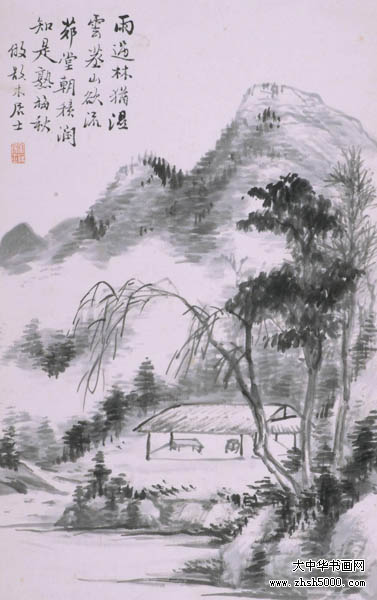 雨过林犹湿
云蒸山欲流
茆堂朝犊润
知是熟梅秋
大中华书画网
www.zhsh5000.com